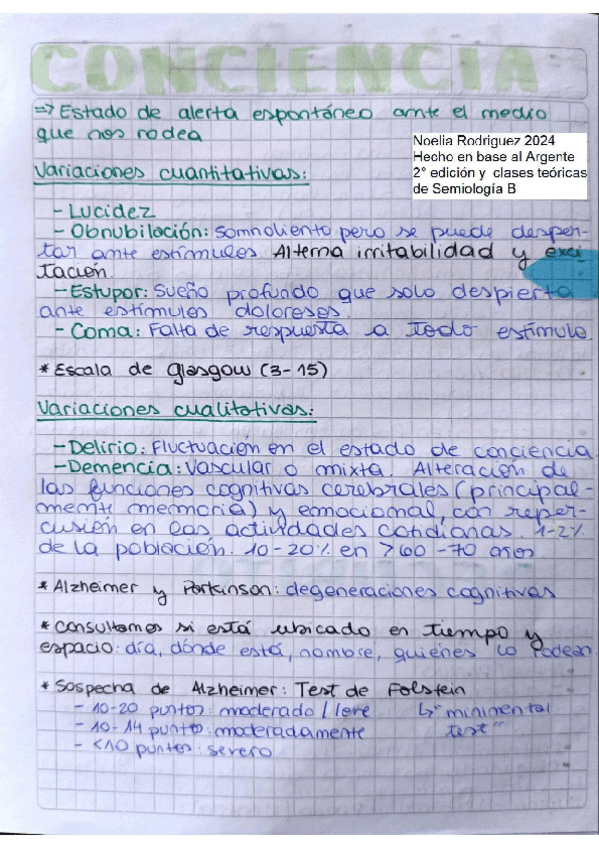 CONCIENCIA
=> Estado de alerta espontáneo ante el medio
que nos rodea
Noelia Rodriguez 2024
Hecho en base al Argente
2° edición y clases teóricas
de Semiología B
Variaciones cuantitativas:
- Lucidez
- Obnubilación: Somnoliento pero se puede desper-
tar ante estímulos Alterna irritabilidad y exci
tación.
- Estupor: Sueño profundo que solo despierta
ante estímulos dolorosos.
- Coma: Falta de respuesta a todo estímulo
* Escala de Glasgow (3-15)
Variaciones cualitativas:
- Delirio: Fluctuación en el estado de conciencia
- Demencia: Vascular o mixta. Alteración de
las funciones cognitivas cerebrales (principal-
mente memoria) y emocional, con reper-
cusión en las actividades cotidianas. 1-2%
de la población. 10-20% en >60-70 años
* Alzheimer y Parkinson: degeneraciones cognitivas
* Consultamos si está ubicado en tiempo y
espacio: día, dónde está, nombre, quiénes lo rodean
* Sospecha de Alzheimer: Test de Folstein
- 10-20 puntos: moderado/leve ↳ "minimental
- 10-14 puntos: moderadamente test"
- <10 puntos: severo